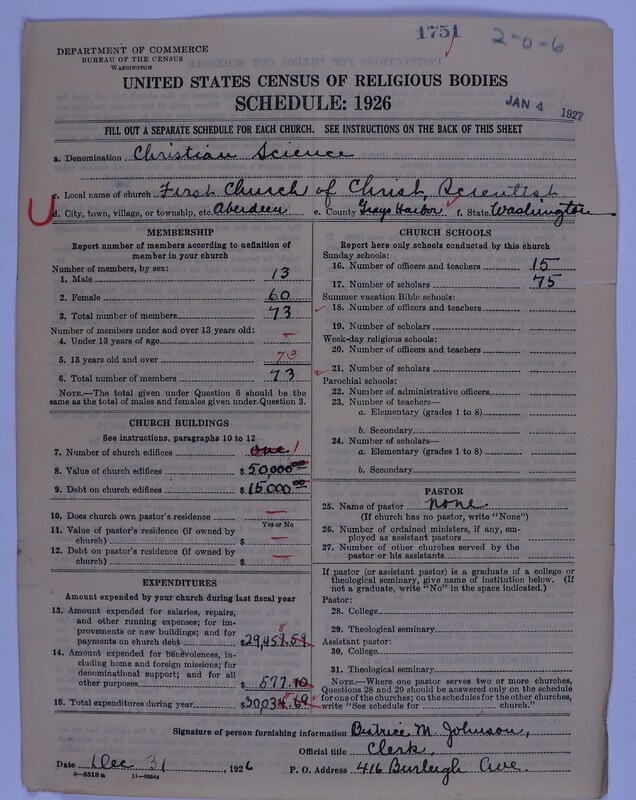 1751
2-0-6
DEPARTMENT OF COMMERCE
BUREAU OF THE CENSUS
WASHINGTON
UNITED STATES CENSUS OF RELIGIOUS BODIES
SCHEDULE: 1926
JAN 4 1927
FILL OUT A SEPARATE SCHEDULE FOR EACH CHURCH. SEE INSTRUCTIONS ON THE BACK OF THIS SHEET
a. Denomination Christian Science
c. Local name of church First Church of Christ, Scientist
d. City, town, village, or township, etc. Aberdeen e. County Grays Harbor f. State Washington
MEMBERSHIP
Report number of members according to definition of
member in your church
Number of members, by sex:
1. Male 13
2. Female 60
3. Total number of members 73
Number of members under and over 13 years old:
4. Under 13 years of age –
5. 13 years old and over 73
6. Total number of members 73
NOTE.—The total given under Question 6 should be the
same as the total of males and females given under Question 3.
CHURCH BUILDINGS
See instructions, paragraphs 10 to 12
7. Number of church edifices one 1
8. Value of church edifices $50,000.00
9. Debt on church edifices $15,000.00
10. Does church own pastor's residence —
Yes or No
11. Value of pastor's residence (if owned by
church) $ —
12. Debt on pastor's residence (if owned by
church) $ —
EXPENDITURES
Amount expended by your church during last fiscal year
13. Amount expended for salaries, repairs,
and other running expenses; for im-
provements or new buildings; and for
payments on church debt $29,457.59
8
14. Amount expended for benevolences, in-
cluding home and foreign missions; for
denominational support; and for all
other purposes $ 577.10
15. Total expenditures during year $30,034.69
CHURCH SCHOOLS
Report here only schools conducted by this church
Sunday schools:
16. Number of officers and teachers 15
17. Number of scholars 75
Summer vacation Bible schools:
18. Number of officers and teachers
19. Number of scholars
Week-day religious schools:
20. Number of officers and teachers
21. Number of scholars
Parochial schools:
22. Number of administrative officers
23. Number of teachers—
a. Elementary (grades 1 to 8)
b. Secondary
24. Number of scholars—
a. Elementary (grades 1 to 8)
b. Secondary
PASTOR
25. Name of pastor none
(If church has no pastor, write "None")
26. Number of ordained ministers, if any, em-
ployed as assistant pastors
27. Number of other churches served by the
pastor or his assistants
If pastor (or assistant pastor) is a graduate of a college or
theological seminary, give name of institution below. (If
not a graduate, write "No" in the space indicated.)
Pastor:
28. College
29. Theological seminary
Assistant pastor:
30. College
31. Theological seminary
NOTE.—Where one pastor serves two or more churches,
Questions 28 and 29 should be answered only on the schedule
for one of the churches; on the schedules for the other churches,
write "See schedule for church."
Signature of person furnishing information Beatrice M. Johnson,
Official title Clerk,
Date Dec 31, 1926 P. O. Address 416 Burleigh Ave.
8—5518 a 11—9084a